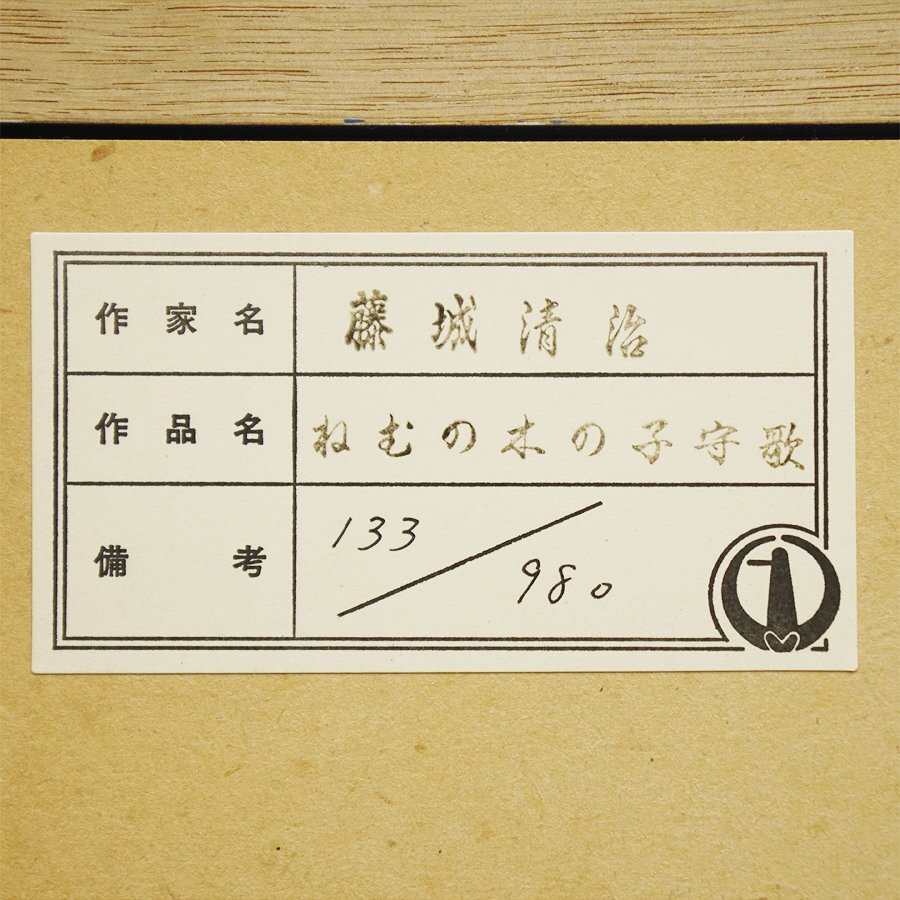 作家名 藤城清治
作品名 ねむの木の子守歌
備考 133/980